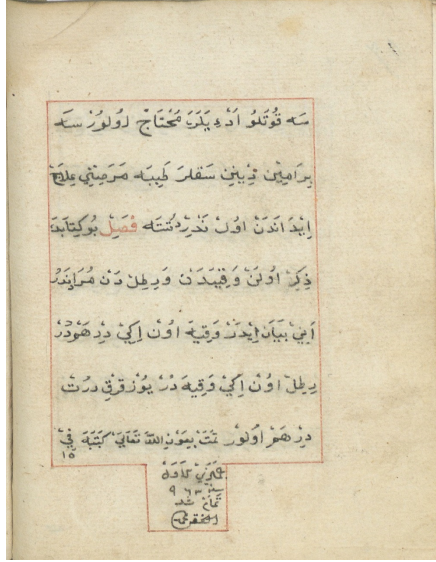 سه قُوتلو اَدْوِيَلَرَ مُحْتَاجْ اولورْ سَه
بِرَامِينْ دِينِنِ سَقلرَ طَبِيبَه مَرَضِنِي عِلاجْ
اِيدَ اندَنْ اولْ نَدِرْ دُتَه فَصِلْ بُوكِتَابدَ
ذِكِرْ اولَنْ وَقِيَدَنْ وَرِطِلْ دَنْ مُرَانَدُرْ
اَنِي بَيَان اِيدَرْ وَقِيَه اونْ اِكِي دِرْهَمْدُرْ
رِطِلْ اونْ اِكِي وَقِيَه دُرْ يُوزْ قِرقْ دُرتْ
دِرْهَمْ اولور تمت بِعَونِ اللّه تَعَالَي كَتَبَه فِي
١٥
سنه ٩٦٣
تمام شد